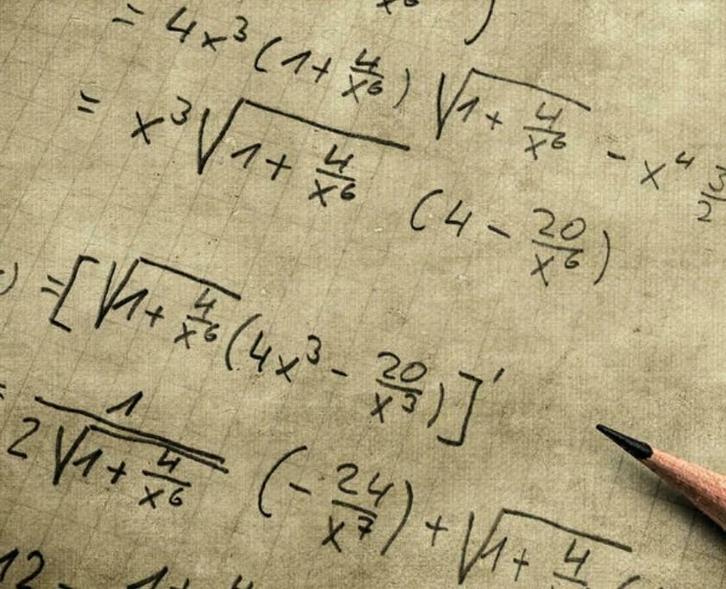 x⁶ )
= 4x³ (1 + 4/x⁶) √(1 + 4/x⁶) - x⁴ 3/2
= x³ √(1 + 4/x⁶) (4 - 20/x⁶)
) = [√(1 + 4/x⁶) (4x³ - 20/x³)]'
= 1/(2√(1 + 4/x⁶)) (- 24/x⁷) + √(1 + 4/
12 - 1 + 4